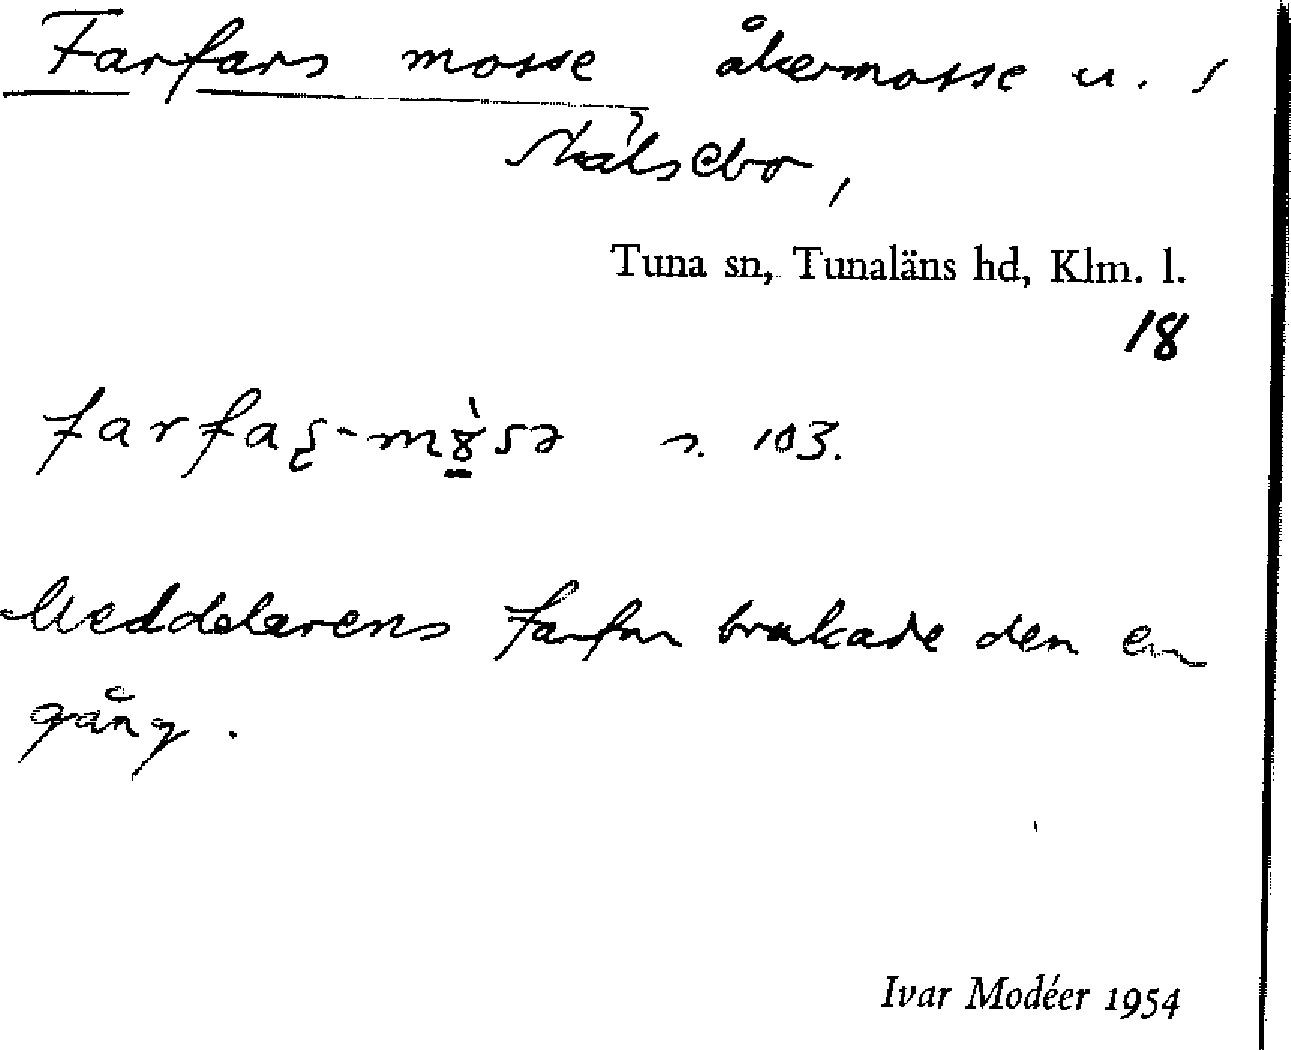 Farfars mosse åkermosse u.
Skälsebo,
Tuna sn, Tunaläns hd, Klm. l.
18
s. 103.
Meddelarens farfar brukade den en
gång.
Ivar Modéer 1954